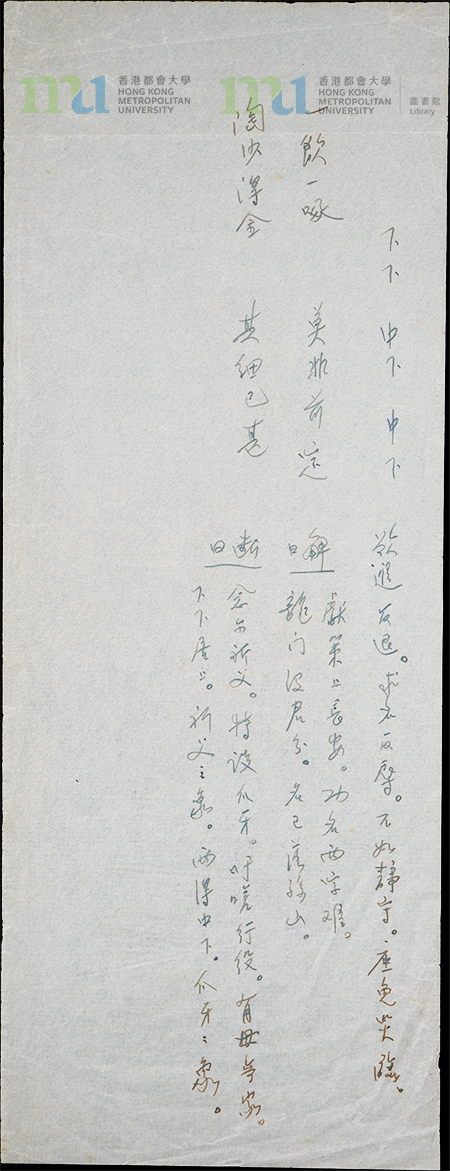 mu 香港都會大學
HONG KONG
METROPOLITAN
UNIVERSITY
mu 香港都會大學
HONG KONG
METROPOLITAN
UNIVERSITY
圖書館
Library
下下 中下 中下 欲進反退。求名反辱。不如靜守。庶免災臨。
一飲一啄 莫非前定
解曰 獻策上長安。功名兩字难。
龍门沒君分。名已落孫山。
淘沙得金 其細已甚
斷曰 念尔祈父。特設爪牙。吁嗟行役。有母無家。
下下居上。祈父之象。兩得中下。爪牙之象。